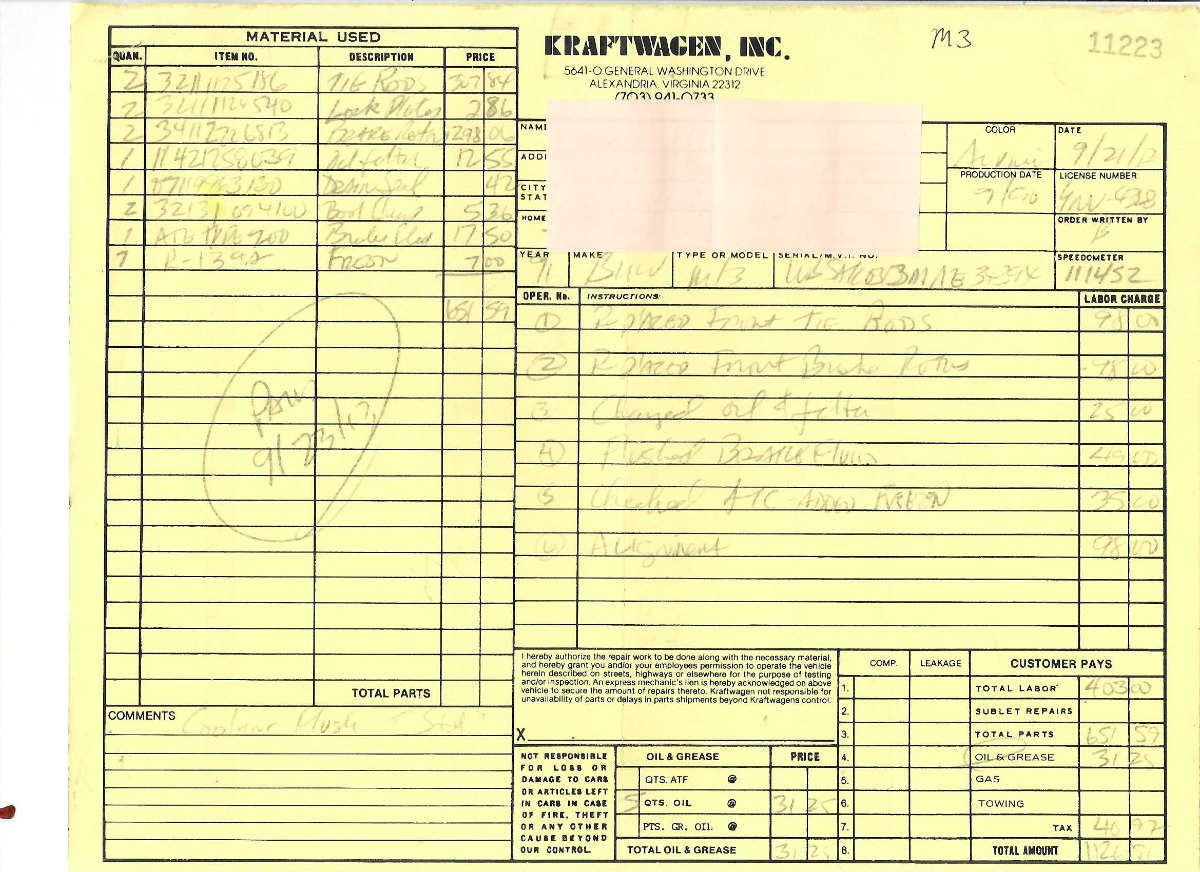 M3
11223
KRAFTWAGEN, INC.
5641-O GENERAL WASHINGTON DRIVE
ALEXANDRIA, VIRGINIA 22312
(703) 941-0733
MATERIAL USED
QUAN. ITEM NO. DESCRIPTION PRICE
2 32111125186 TIE RODS 307 84
2 32111124540 Lock Plates 2 86
2 34112226813 BRAKE Rotors 298 06
1 11421258039 Oil filter 12 55
1 07119963130 Seal 42
2 32131094100 Boot Clamp 5 36
1 ATE TYPE 200 Brake Fluid 17 50
7 FREON 7 00
651 59
PAID
9/23/12
TOTAL PARTS
COMMENTS Coolant Flush
NAME
ADD
CITY
STAT
HOME
COLOR
DATE 9/21/12
PRODUCTION DATE 9/90
LICENSE NUMBER
ORDER WRITTEN BY
YEAR 91 MAKE BMW TYPE OR MODEL M/3 SERIAL/M.V.I. NO.
SPEEDOMETER 111452
OPER. No. INSTRUCTIONS: LABOR CHARGE
1 Replaced Front TIE RODS 98 00
2 Replaced Front Brake Rotors 98 00
3 Changed oil & filter 25 00
4 Flushed BRAKE Fluid 49 00
5 Checked A/C - ADDED FREON 35 00
6 Alignment 98 00
I hereby authorize the repair work to be done along with the necessary material,
and hereby grant you and/or your employees permission to operate the vehicle
herein described on streets, highways or elsewhere for the purpose of testing
and/or inspection. An express mechanic's lien is hereby acknowledged on above
vehicle to secure the amount of repairs thereto. Kraftwagen not responsible for
unavailability of parts or delays in parts shipments beyond Kraftwagens control.
X
NOT RESPONSIBLE
FOR LOSS OR
DAMAGE TO CARS
OR ARTICLES LEFT
IN CARS IN CASE
OF FIRE, THEFT
OR ANY OTHER
CAUSE BEYOND
OUR CONTROL.
OIL & GREASE PRICE
QTS. ATF @
5 QTS. OIL @ 31 25
PTS. GR. OIL @
TOTAL OIL & GREASE 31 25
COMP. LEAKAGE
1.
2.
3.
4.
5.
6.
7.
8.
CUSTOMER PAYS
TOTAL LABOR 403 00
SUBLET REPAIRS
TOTAL PARTS 651 59
OIL & GREASE 31 25
GAS
TOWING
TAX 40 97
TOTAL AMOUNT 1126 81